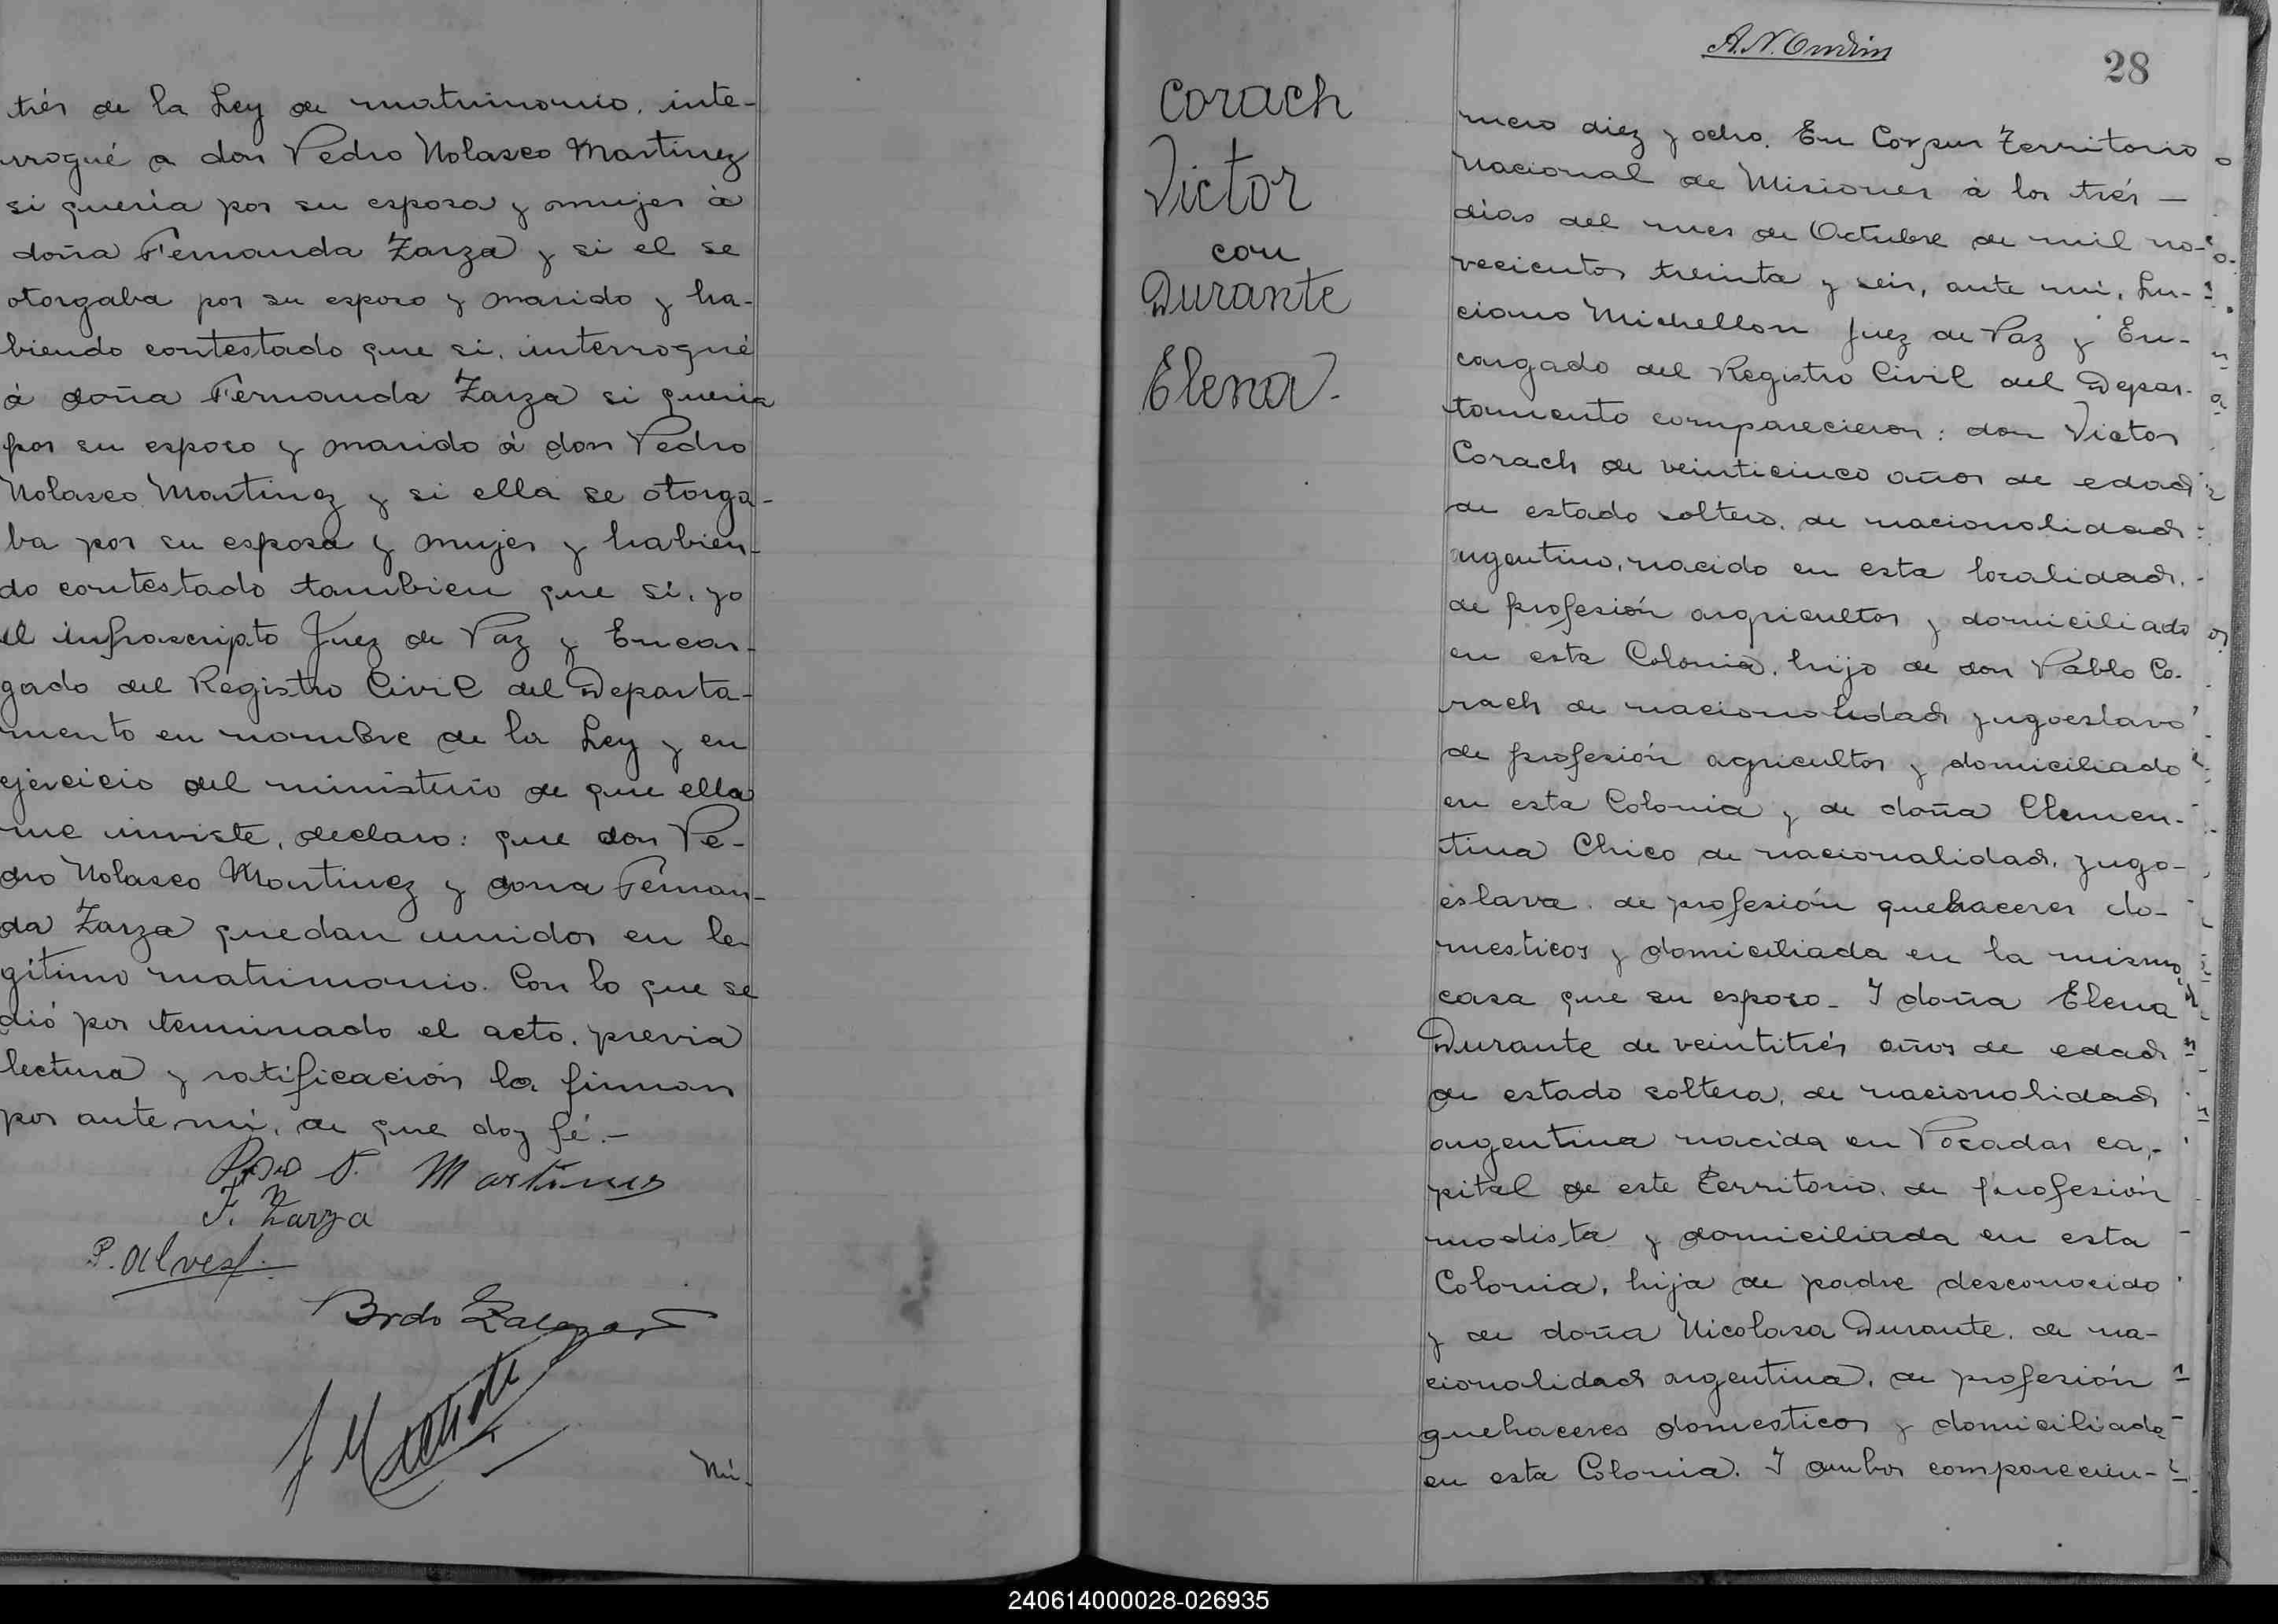 trés de la Ley de matrimonio, inte-
rrogué a don Pedro Nolasco Martinez
si queria por su esposa y mujer à
doña Fernanda Zarza y si el se
otorgaba por su esposo y marido y ha-
biendo contestado que si, interrogué
à doña Fernanda Zarza si queria
por su esposo y marido à don Pedro
Nolasco Martinez y si ella se otorga-
ba por su esposa y mujer y habien-
do contestado tambien que si, yo
el infrascripto Juez de Paz y Encar-
gado del Registro Civil del Departa-
mento en nombre de la Ley y en
ejercicio del ministerio de que ella
me inviste, declaro: que don Pe-
dro Nolasco Martinez y dona Fernan-
da Zarza quedan unidos en le-
gítimo matrimonio. Con lo que se
dió por terminado el acto, previa
lectura y ratificación la firman
por ante mi, de que doy fé.-
Martines
F. Zarza
P. Alves
Brdo Zalazar
Nú-
A. N.
28
Corach
Victor
con
Durante
Elena-
mero diez y ocho. En Corpus Territorio
Nacional de Misiones à los trés —
dias del mes de Octubre de mil no-
vecientos treinta y seis, ante mi, Lu-
ciano Michellon Juez de Paz y En-
cargado del Registro Civil del Depar-
tamento comparecieron: don Victor
Corach de veinticinco años de edad
de estado soltero, de nacionalidad
argentino, nacido en esta localidad,
de profesión agricultor y domiciliado
en esta Colonia, hijo de don Pablo Co-
rach de nacionalidad yugoeslavo
de profesión agricultor y domiciliado
en esta Colonia y de doña Clemen-
tina Chico de nacionalidad, yugo-
eslava, de profesión quehaceres do-
mesticos y domiciliada en la misma
casa que su esposo- Y doña Elena
Durante de veintitrés años de edad
de estado soltera, de nacionalidad
argentina nacida en Posadas ca-
pital de este Territorio, de profesión
modista y domiciliada en esta
Colonia, hija de padre desconocido
y de doña Nicolasa Durante, de na-
cionalidad argentina, de profesión
quehaceres domesticos y domiciliada
en esta Colonia. Y ambos comparecien-
240614000028-026935